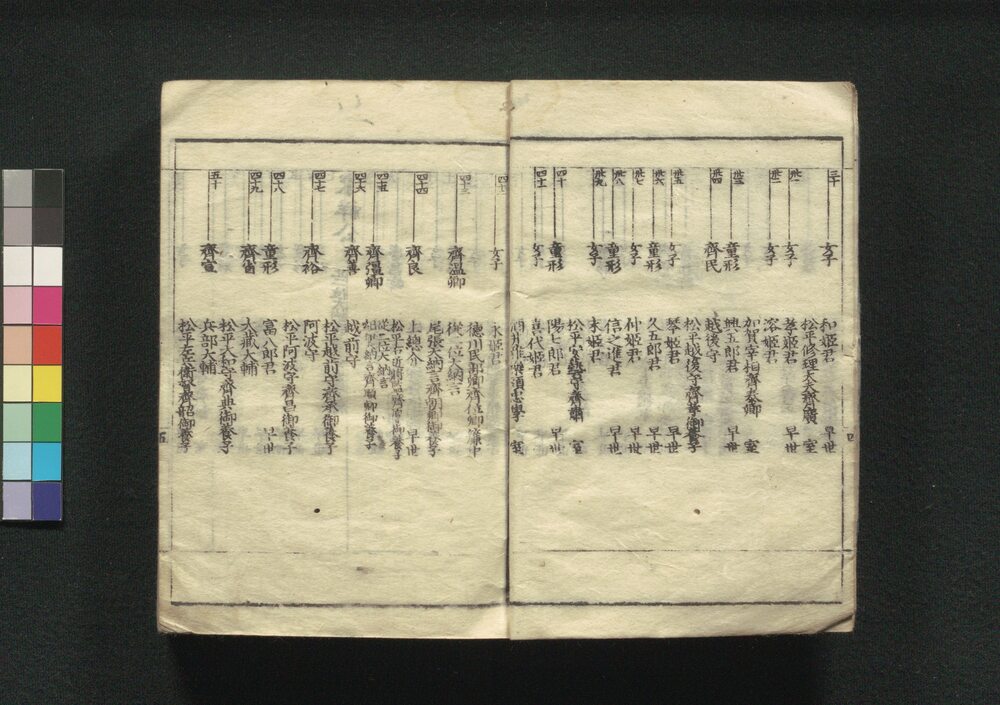 三十 女子 和姫君 早世
松平修理大夫齊廣 室
卅一 女子 孝姫君 早世
卅二 女子 溶姫君
加賀宰相齊泰卿 室
卅三 童形 興五郎君 早世
卅四 齊民 越後守
松平越後守齊孝御養子
卅五 女子 琴姫君 早世
卅六 童形 久五郎君 早世
卅七 女子 仲姫君 早世
卅八 童形 信之進君 早世
卅九 女子 末姫君
松平安藝守齊粛 室
四十 童形 陽七郎君 早世
四十一 女子 喜代姫君
酒井雅樂頭忠學 室
四十二 女子 永姫君
徳川民部卿齊位卿簾中
四十三 齊温卿 従二位大納言
尾張大納言齊朝卿御養子
四十四 齊良 上總介 早世
松平右近将監齊厚御養子
四十五 齊彊卿 従二位大納言
紀伊大納言齊順卿御養子
四十六 齊善 越前守
松平越前守齊承御養子
四十七 齊裕 阿波守
松平阿波守齊昌御養子
四十八 童形 富八郎君 早世
四十九 齊省 大蔵大輔
松平大和守齊典御養子
五十 齊宣 兵部大輔
松平左兵衛督齊韶御養子